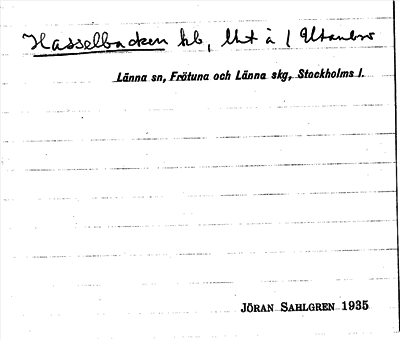 Hasselbacken hb, lht å 1 Utanbro
Länna sn, Frötuna och Länna skg, Stockholms l.
JÖRAN SAHLGREN 1935